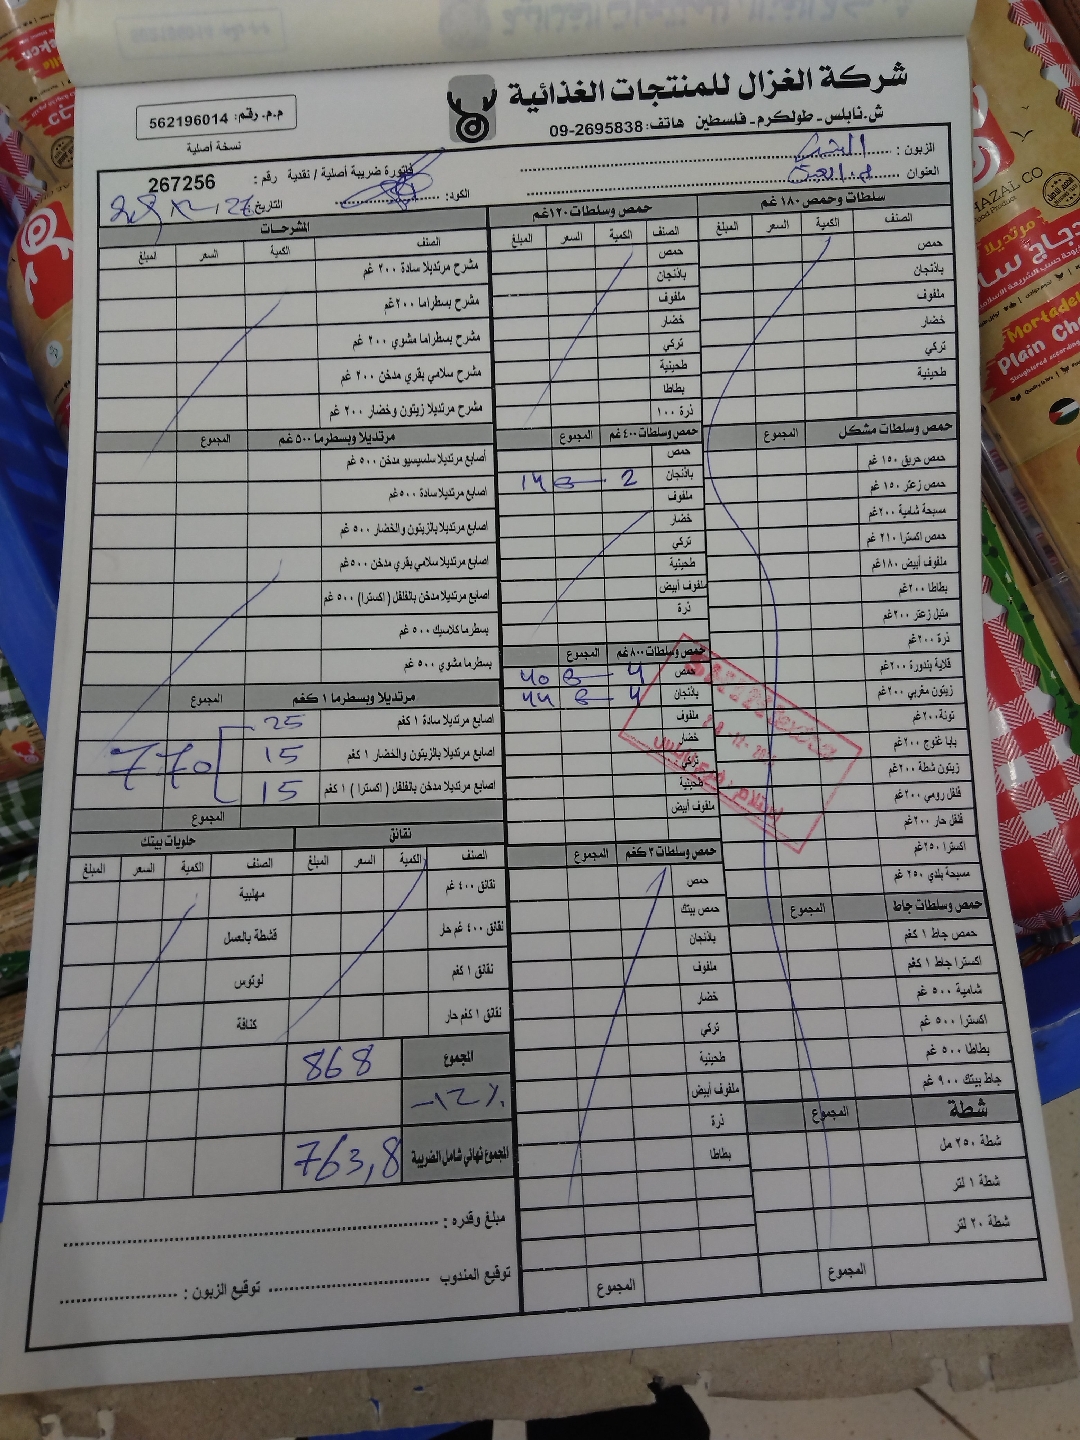 شركة الغزال للمنتجات الغذائية
ش.نابلس - طولكرم - فلسطين هاتف: 09-2695838
م.م. رقم: 562196014
نسخة أصلية
الزبون :
العنوان
فاتورة ضريبة أصلية / نقدية رقم : 267256
الكود:
التاريخ:
سلطات وحمص ١٨٠ غم
الصنف الكمية السعر المبلغ
حمص
باذنجان
ملفوف
خضار
تركي
طحينية
حمص وسلطات مشكل المجموع
حمص حريق ١٥٠ غم
حمص زعتر ١٥٠ غم
مسبحة شامية ٢٠٠غم
حمص اكسترا ٢١٠ غم
ملفوف أبيض ١٨٠غم
بطاطا ٢٠٠غم
متبل زعتر ٢٠٠غم
ذرة ٢٠٠غم
قلاية بندورة ٢٠٠غم
زيتون مغربي ٢٠٠غم
تونة٢٠٠غم
بابا غنوج ٢٠٠غم
زيتون شطة ٢٠٠غم
فلفل رومي ٢٠٠غم
فلفل حار ٢٠٠غم
اكسترا ٢٥٠غم
مسبحة بلدي ٢٥٠ غم
حمص وسلطات جاط المجموع
حمص جاط ١ كغم
اكسترا جاط ١ كغم
شامية ٥٠٠ غم
اكسترا ٥٠٠ غم
بطاطا ٥٠٠ غم
جاط بيتك ٩٠٠ غم
شطة المجموع
شطة ٢٥٠ مل
شطة ١ لتر
شطة ٢٠ لتر
المجموع
حمص وسلطات ١٢٠غم
الصنف الكمية السعر المبلغ
حمص
باذنجان
ملفوف
خضار
تركي
طحينية
بطاطا
ذرة ١٠٠
حمص وسلطات ٤٠٠غم المجموع
حمص
باذنجان 2
ملفوف
خضار
تركي
طحينية
ملفوف أبيض
ذرة
حمص وسلطات ٨٠٠غم المجموع
حمص 4
باذنجان 4
ملفوف
خضار
تركي
طحينية
ملفوف أبيض
حمص وسلطات ٣كغم المجموع
حمص
حمص بيتك
باذنجان
ملفوف
خضار
تركي
طحينية
ملفوف أبيض
ذرة
بطاطا
المجموع
المشرحات
الصنف الكمية السعر المبلغ
مشرح مرتديلا سادة ٢٠٠ غم
مشرح بسطراما ٢٠٠غم
مشرح بسطراما مشوي ٢٠٠ غم
مشرح سلامي بقري مدخن ٢٠٠ غم
مشرح مرتديلا زيتون وخضار ٢٠٠ غم
مرتديلا وبسطرما ٥٠٠ غم المجموع
أصابع مرتديلا سلسيسيو مدخن ٥٠٠ غم
اصابع مرتديلا سادة ٥٠٠غم
اصابع مرتديلا بالزيتون والخضار ٥٠٠ غم
اصابع مرتديلا سلامي بقري مدخن ٥٠٠غم
اصابع مرتديلا مدخن بالفلفل ( اكسترا) ٥٠٠ غم
بسطرما كلاسيك ٥٠٠ غم
بسطرما مشوي ٥٠٠ غم
مرتديلا وبسطرما ١ كغم المجموع
اصابع مرتديلا سادة ١ كغم 25
اصابع مرتديلا بالزيتون والخضار ١ كغم 15 770
اصابع مرتديلا مدخن بالفلفل ( اكسترا ) ١ كغم 15
المجموع
نقانق
الصنف الكمية السعر المبلغ
نقانق ٤٠٠ غم
نقانق ٤٠٠ غم حار
نقانق ١ كغم
نقانق ١ كغم حار
حلويات بيتك
الصنف الكمية السعر المبلغ
مهلبية
قشطة بالعسل
لوتوس
كنافة
المجموع 868
-12%
المجموع نهائي شامل الضريبة 763,8
مبلغ وقدره :
توقيع المندوب
توقيع الزبون :
GHAZAL CO
Food Product
Mortadella
Plain Chi